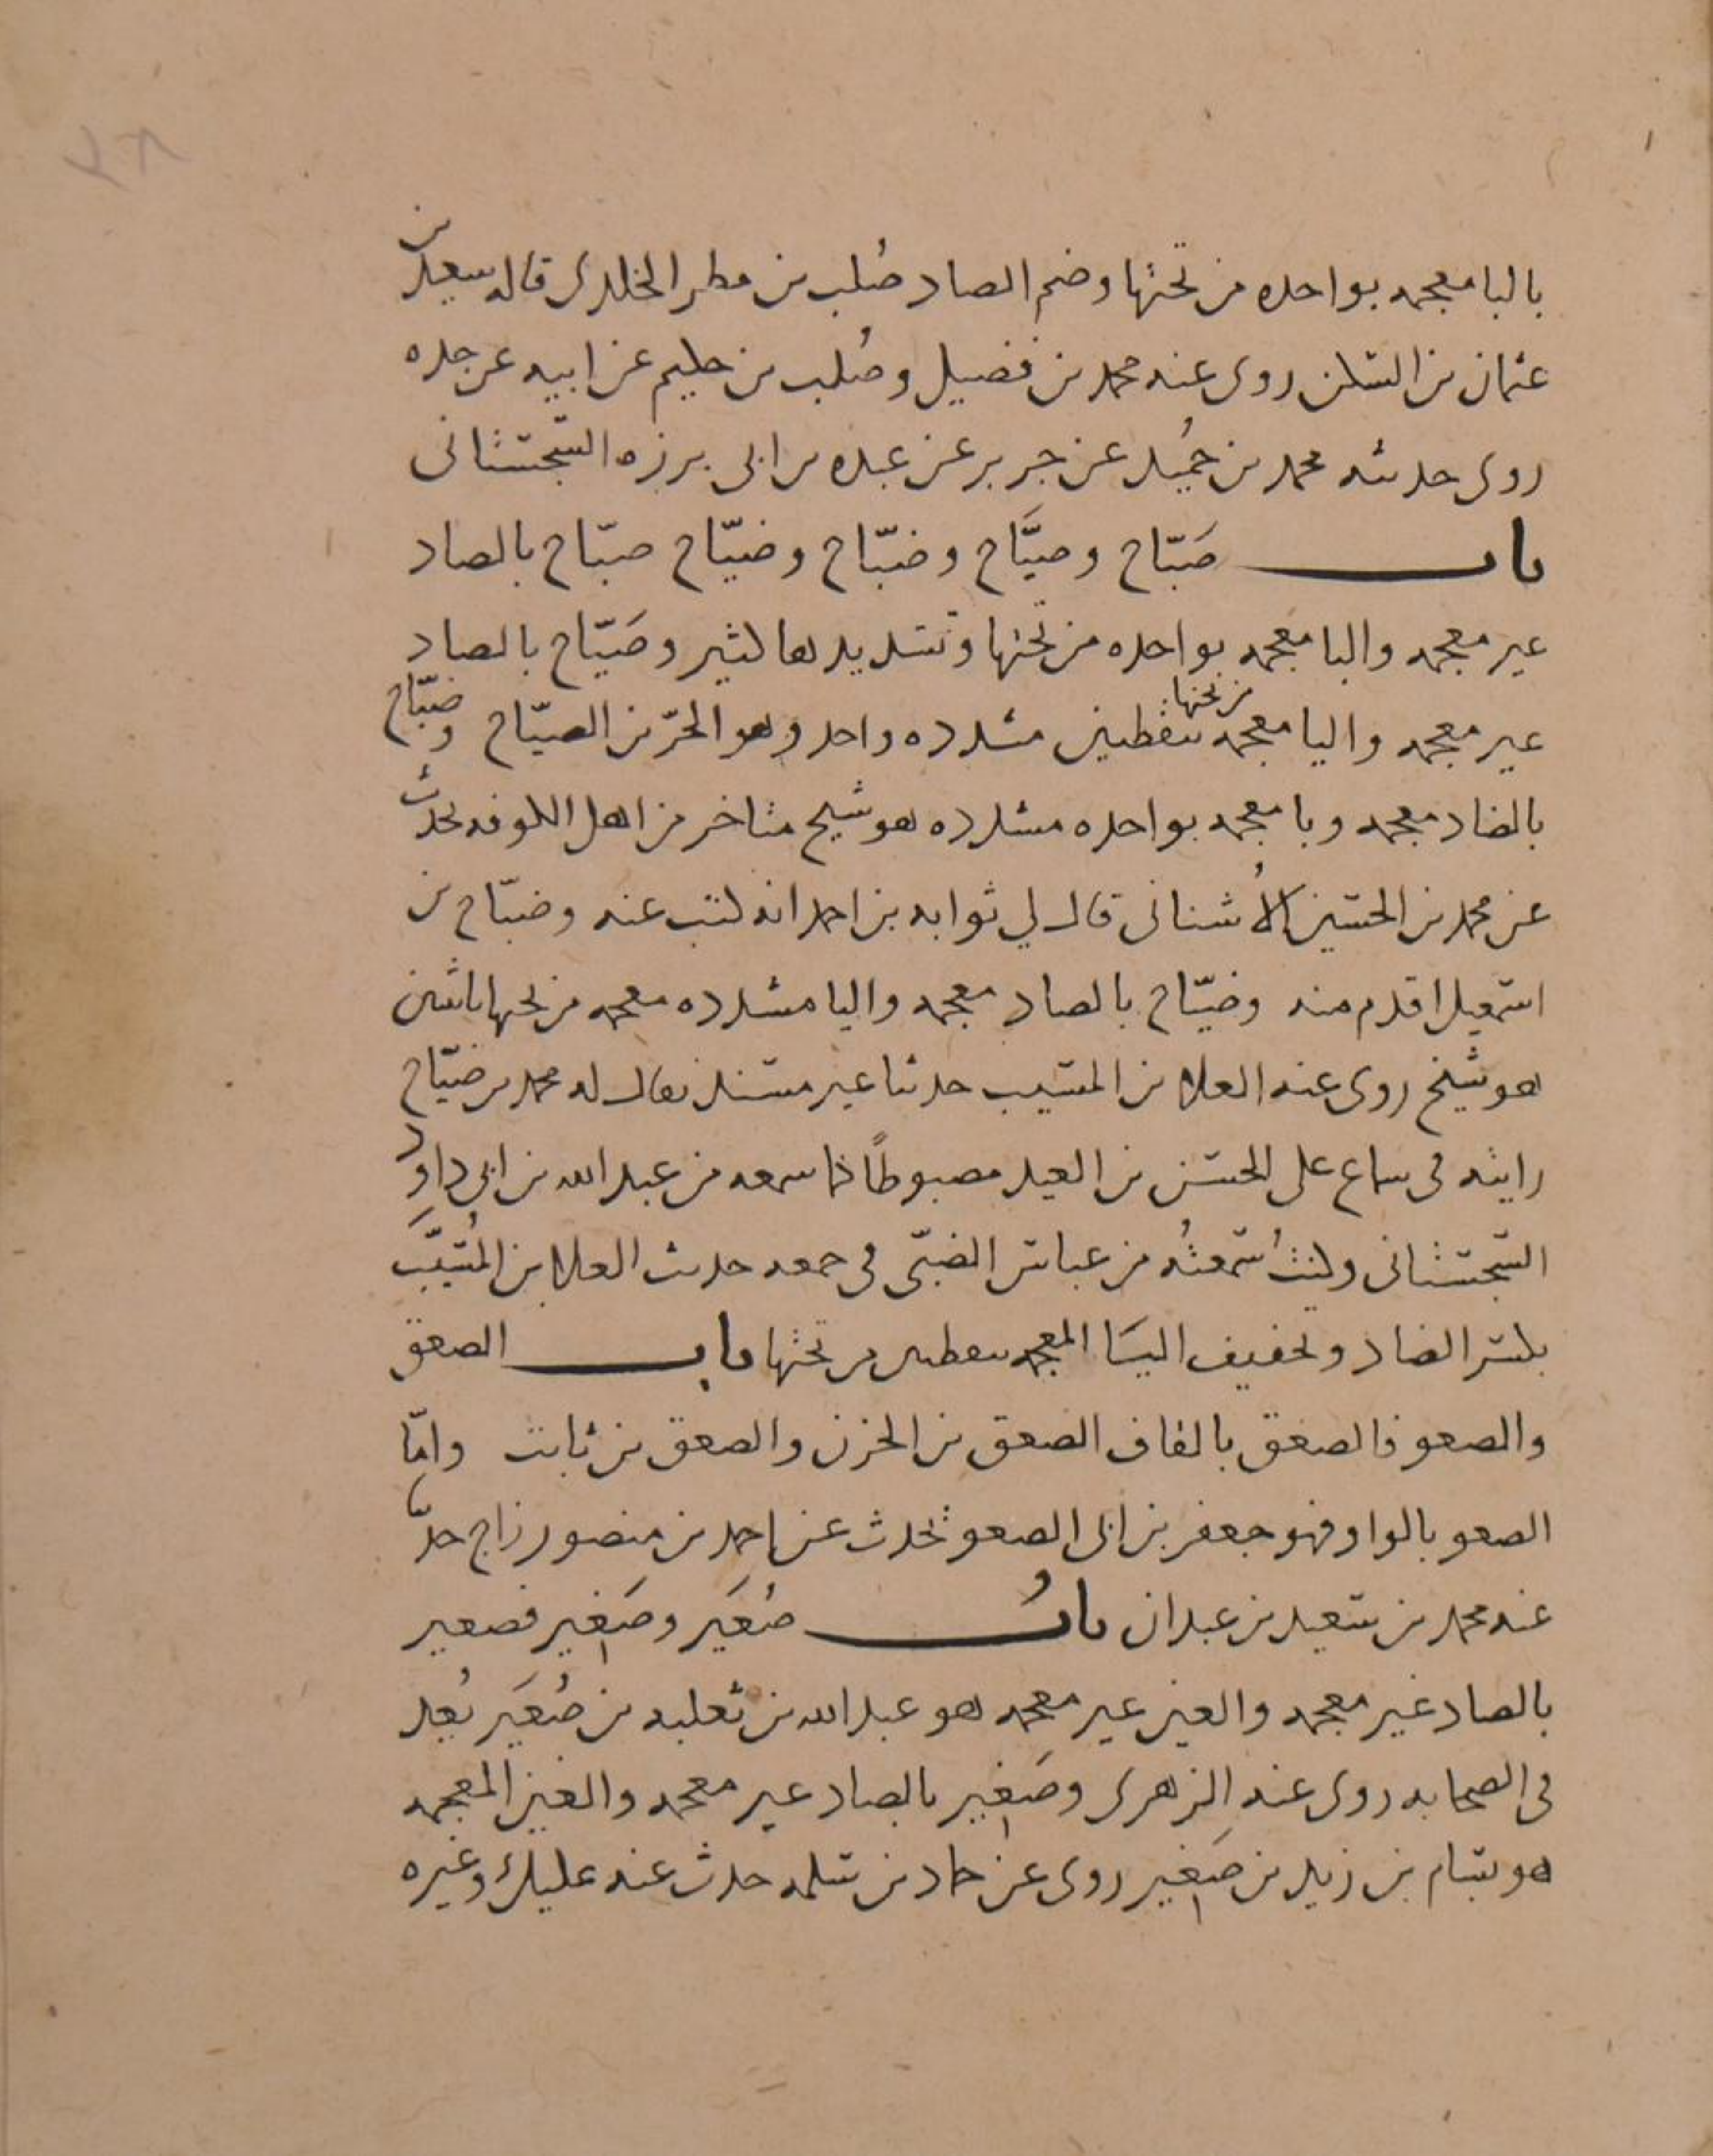 بالبا معجمه بواحده من تحتها وضم الصاد صُلب بن مطر الخلدى قاله سعيد بن
عثمان بن السكن روى عنه محمد بن فضيل وصُلب بن حليم عن ابيه عن جده
روى حديثه محمد بن حُميد عن جرير عن عبده بن ابى برزه السّجستانى
باب صَبّاح وصيَّاح وضبّاح وضيّاح صبّاح بالصاد
غير معجمه والبا معجمه بواحده من تحتها وتشديدها كثير وصَيّاح بالصاد
غير معجمه واليا معجمه بنقطتين من تحتها مشدده واحد وهو الحرّ بن الصيّاح وضبّاح
بالضاد معجمه وبا معجمه بواحده مشدده هو شيخ متاخر من اهل الكوفه تحدث
عن محمد بن الحسين الأُشنانى قال لي ثوابه بن احمد انه كتب عنه وضبّاح بن
اسمعيل اقدم منه وضيّاح بالضاد معجمه واليا مشدده معجمه من تحتها باثنين
هو شيخ روى عنه العلا بن المسيب حديثا غير مسند يقال له محمد بن ضيّاح
رايته فى سماع على الحسن بن العبد مضبوطًا مما سمعه من عبد الله بن ابى داود
السّجستانى وكنتُ سمعتُه من عباس الضبّى فى جمعه حديث العلا بن المُسيَّب
بكسر الضاد وتخفيف اليا المعجمه بنقطتين من تحتها باب الصعق
والصعو فالصعق بالقاف الصعق بن الحزن والصعق بن ثابت وامّا
الصعو بالواو فهو جعفر بن ابى الصعو تحدث عن احمد بن منصور زاج حدّثنا
عنه محمد بن سعيد بن عبدان بابُ صُعَير وصَغِير فصعير
بالصاد غير معجمه والعين غير معجمه هو عبد الله بن ثعلبه بن صُعَير يُعِد
فى الصحابه روى عنه الزهرى وصَغِير بالصاد غير معجمه والغين المعجمه
هو بسّام بن زيد بن صَغِير روى عن حماد بن سلمه حدث عنه عليك وغيره